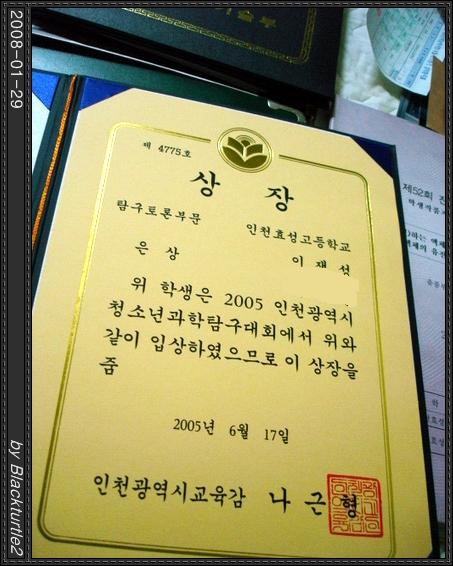 2008-01-29
제 4775호
상 장
탐구토론부문
인천효성고등학교
은 상
이 재 석
위 학생은 2005 인천광역시
청소년과학탐구대회에서 위와
같이 입상하였으므로 이 상장을
줌
2005년 6월 17일
인천광역시교육감 나 근 형
제52회
by Blackturtle2